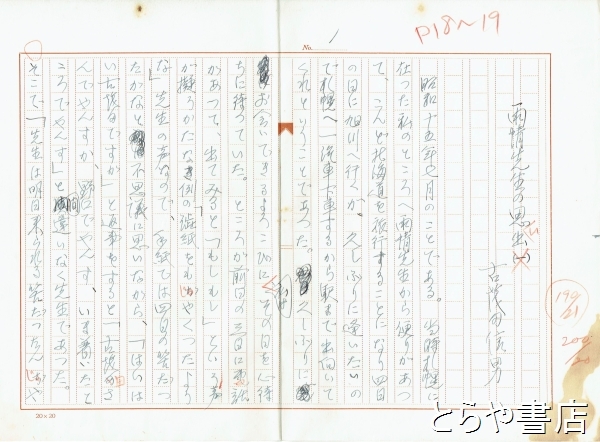 P18~19
No. 1
雨情先生の思い出(一)
古茂田信男
190/21
200/20
昭和十五年七月のことである。当時札幌に
在った私のところへ雨情先生から便りがあっ
て、こんど北海道を旅行することになり四日
の日に旭川へ行くが、久しぶりに逢いたいの
で札幌へ一汽車下車するから駅まで出向いて
くれということであった。久しぶりに
お会いできるよろこびに、その日を心待
ちに待っていた。ところが前日の三日に電話
があって、出てみると「もしもし」という声
が擬うかたなき例の澁紙をもじゃくったよう
な、先生の声なので、手紙では四日の筈だっ
たがなと不思議に思いながら、「はいは
い古茂田ですが」と返事をすると「古茂田さ
んでやんすか、野口でやんす、いま着いたと
ころでやんす」と間違いなく先生であった。
そこで「先生は明日来られる筈だったんじゃ
20×20
とらや書店